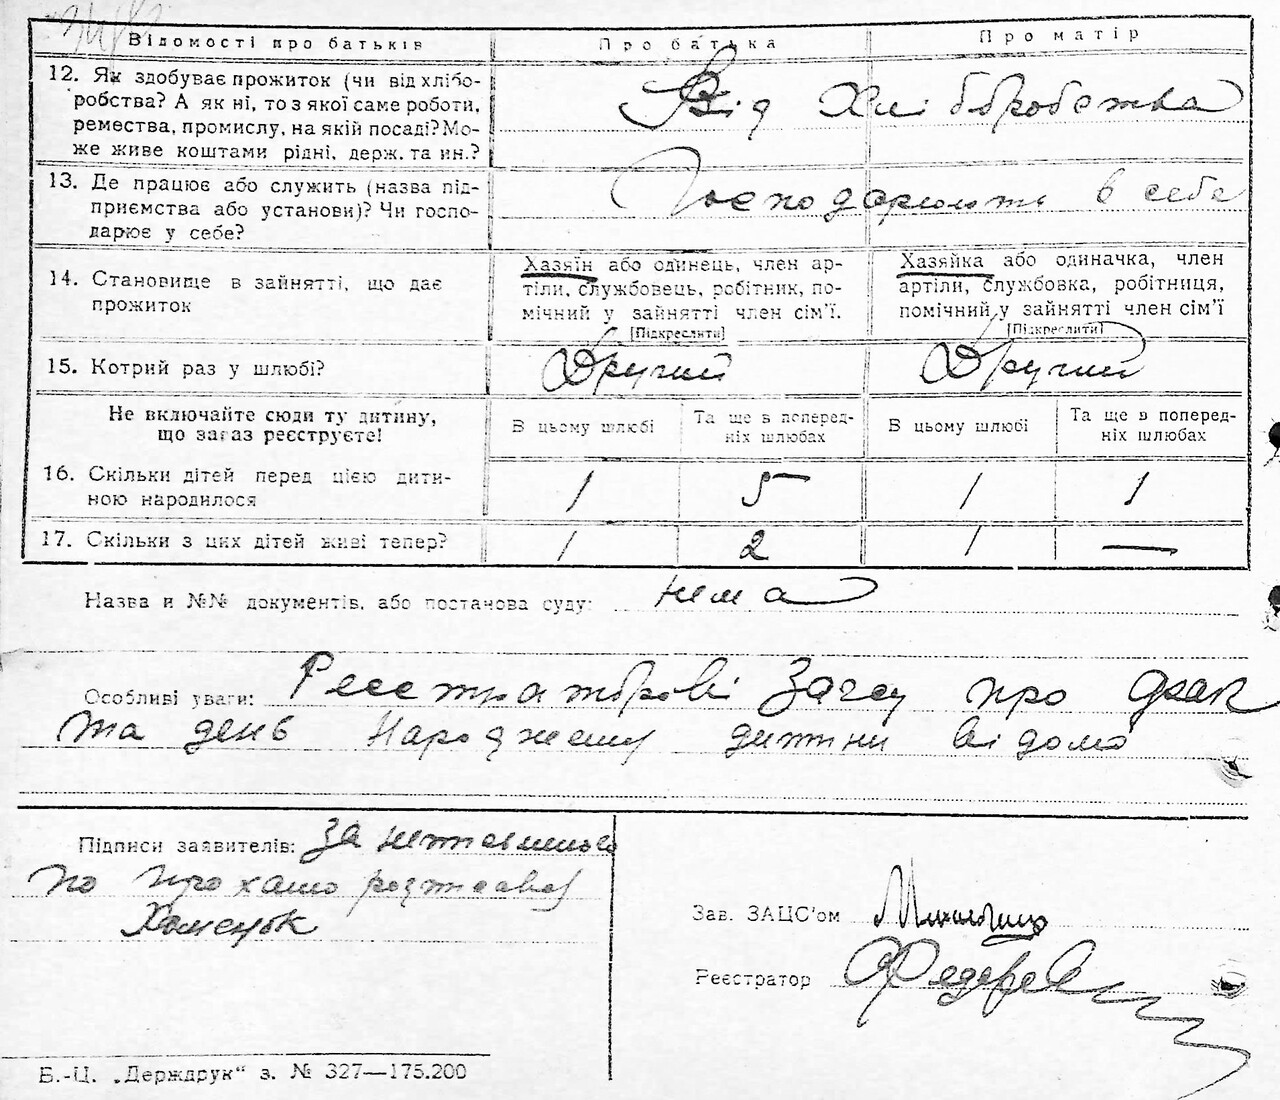 Відомості про батьків Про батька Про матір
12. Як здобуває прожиток (чи від хлібо-
робства? А як ні, то з якої саме роботи,
ремества, промислу, на якій посаді? Мо-
же живе коштами рідні, держ. та ин.?
Від Хліборобства
13. Де працює або служить (назва під-
приємства або установи)? Чи госпо-
дарює у себе?
Господарюють в себе
14. Становище в зайнятті, що дає
прожиток
Хазяїн або одинець, член ар-
тіли, службовець, робітник, по-
мічний у зайнятті член сім'ї.
[Підкреслити]
Хазяйка або одиначка, член
артіли, службовка, робітниця,
помічний у зайнятті член сім'ї
[Підкреслити]
15. Котрий раз у шлюбі? Другий Другий
Не включайте сюди ту дитину,
що зараз реєструєте!
В цьому шлюбі Та ще в поперед-
ніх шлюбах В цьому шлюбі Та ще в поперед-
ніх шлюбах
16. Скільки дітей перед цією дити-
ною народилося 1 5 1 1
17. Скільки з цих дітей живі тепер? 1 2 1 —
Назва и №№ документів, або постанова суду: нема
Особливі уваги: Реєстраторові Загсу про факт
та день Народженну дитини відомо
Підписи заявителів: За
по прохашю
Хоменок
Зав. ЗАЦС'ом
Реєстратор
Б.-Ц. „Держдрук“ з. № 327—175.200